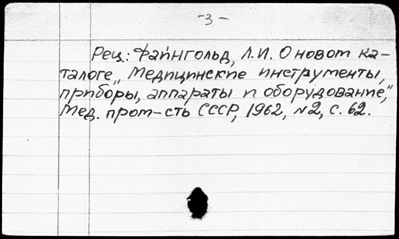 -3-
Рец.: Файнгольд, Л.И. О новом ка-
талоге „Медицинские инструменты,
приборы, аппараты и оборудование",
Мед. пром-сть СССР, 1962, №2, с. 62.